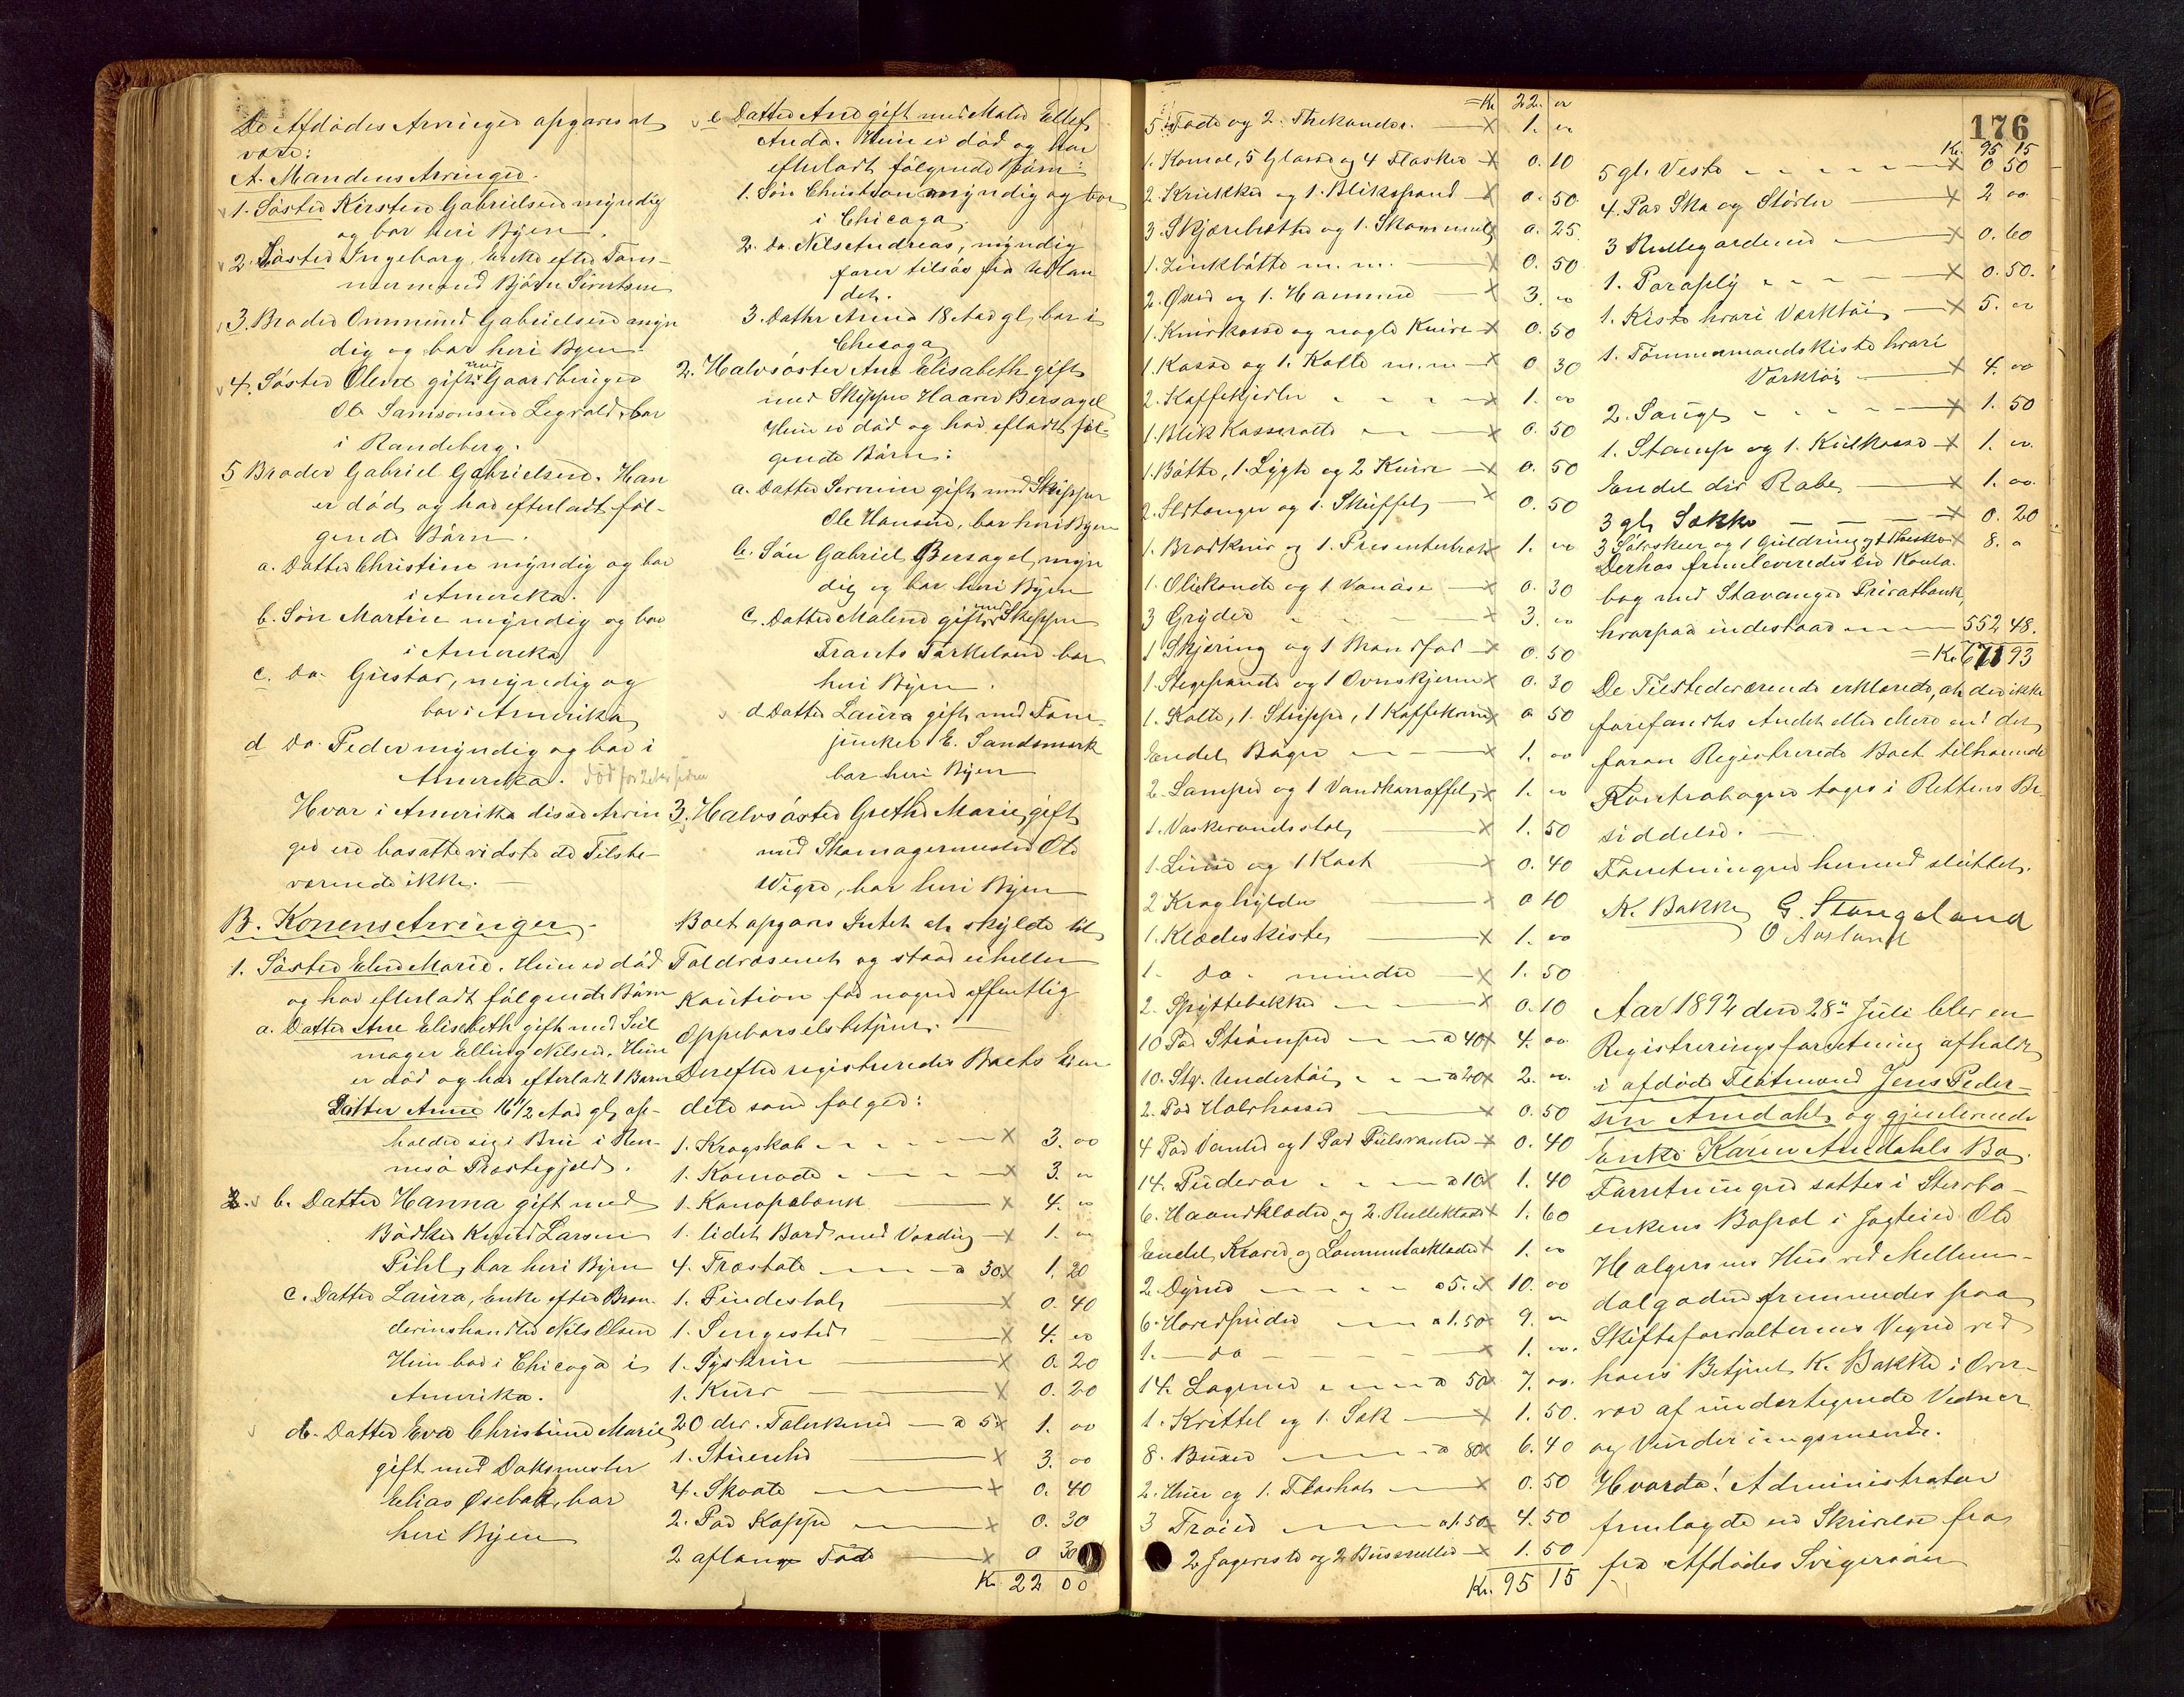 De Afdødes Arvinger opgaves at
være:
A. Mandens Arvinger.
1. Søster Kirsten Gabrielsen myndig
og bor heri Byen.
2. Søster Ingeborg, Enke efter Tøm-
mermand Bjørn Sivertsen
3. Broder Ommund Gabrielsen myn
dig og bor heri Byen.
4. Søster Olene gift med Gaardbruger
Ole Samsonsen Legvold, bor
i Randeberg.
5 Broder Gabriel Gabrielsen. Han
er død og har efterladt føl-
gende Børn.
a. Datter Christine myndig og bor
i Amerika.
b. Søn Martin myndig og bor
i Amerika
c. Do. Gustav, myndig og
bor i Amerika
d Do. Peder myndig og bor i
Amerika. død for 2 Aar siden
Hvor i Amerika disse Arvin
ger ere bosatte vidste de Tilste-
værende ikke.
B. Konens Arvinger.
1. Søster Elen Marie. Hun er død
og har efterladt følgende Børn
a. Datter Ane Elisabeth gift med Seil
mager Elling Nilsen. Hun
er død og har efterladt 1 Barn
Datter Anne 16 1/2 Aar gl, op-
holder sig i Brue i Ren-
nesø Præstegjeld.
b. Datter Hanna gift med
Bødker Knud Larsen
Pihl, bor heri Byen
c. Datter Laura, Enke efter Bræn
devinshandler Nils Olsen
Hun bor i Chicago i
Amerika.
d. Datter Eva Christine Marie
gift med Doksmester
Elias Øsebak, bor
heri Byen
e Datter Ane gift med Maler Ellef
Anda. Hun er død og har
efterladt følgende Børn:
1. Søn Christian myndig og bor
i Chicago
2. Do. Nils Andreas, myndig
farer tilsøs fra Udlan
det.
3. Datter Anna 18 Aar gl, bor i
Chicago
2. Halvsøster Ane Elisabeth gift
med Skipper Haaver Bersagel
Hun er død og har efterladt føl-
gende Børn:
a. Datter Serine gift med Skipper
Ole Hansen, bor heri Byen
b. Søn Gabriel Bersagel, myn
dig og bor heri Byen
c. Datter Malene gift med Skipper
Frants Torkelsen bor
heri Byen.
d Datter Laura gift med Fane-
junker E. Sandsmark
bor heri Byen
3. Halvsøster Grethe Marie, gift
med Skomagermester Ole
Vigre, bor heri Byen
Boet opgaves Intet at skylde til
Toldvæsenet og staar eiheller
Kaution for nogen offentlig
Oppebørselsbetjent.
Derefter registreredes Boets Eien
dele som følger:
1. Kragskab X 3. 00
1. Komode X 3. 00
1. Kanapebænk X 4. 00
1. lidet Bord med Voxdug X 1. 00
4. Træstole a 30 X 1. 20
1. Pindestol X 0. 40
1. Sengested X 4. 00
1. Syskrin X 0. 20
1. Kurv X 0. 20
20 div. Talerkener a 5 X 1. 00
1. Stueuhr X 3. 00
4. Skaale X 0. 40
2. Par Kopper X 0. 30
2 aflange Fade X 0 30
Kr. 22 00
=Kr. 22. 00
5. Fade og 2. Thekander. X 1. 00
1. Komol, 5 Glasse og 4 Flasker X 0. 10
2. Krukker og 1. Blikspand X 0. 50
3. Skjærebrætter og 1. Skammel X 0. 25
1. Zinkbøtte m. m. X 0. 50
2. Øxer og 1. Hammer X 3. 00
1. Knivkasse og nogle Knive X 0. 50
1. Kasse og 1. Kolle m. m X 0 30
2. Kaffekjedler X 1. 00
1. Blik Kasserolle X 0. 50
1. Bøtte, 1. Lygte og 2 Knive X 0. 50
2. Ildtænger og 1. Skuffel X 0. 50
1. Brødkniv og 1. Presenterbræt X 1. 00
1. Oliekande og 1 X 0. 30
3 Gryder X 3. 00
1 Skjæring og 1 Brandfad X 0. 50
1. Stegepande og 1 Ovnskjerm X 0. 30
1. Kolle, 1. Strippe, 1 Kaffekværn X 0 50
Endel Bøger X 1. 00
2. Lamper og 1 Vandkaraffel X 1. 00
1. Vaskevandsstol X 1. 50
1. Linse og 1 Kost X 0. 40
2 Kroghylder X 0 10
1. Klædeskiste X 1. 00
1. Do. mindre X 1. 50
2. Spyttebakker X 0. 10
10 Par Strømper a 40 X 4. 00
10. Stk. Undertøi a 20 X 2. 00
2. Par Halvhoser X 0. 50
4 Par Vanter og 1 Par Pulsvanter X 0. 40
14. Pudevar a 10 X 1. 40
6. Haandklæder og 2. Rulleklæder X 1. 60
Endel Kraver og Lommetørklæder X 1. 00
2. Dyner a 5. X 10. 00
6. Hovedpuder a 1.50 X 9. 00
1. do X 1. 00.
14. Lagener a 50 X 7. 00.
1. Kittel og 1. Sæk X 1. 50.
8. Buxer a 80 X 6. 40
2. Huer og 1. Floshat X 0. 50
3 Trøier a 1.50 X 4. 50
2 Jageveste og 2 Buseruller X 1. 50
Kr. 95 15
176
Kr. 95 15
5 gl. Veste X 0 50
4. Par Sko og Støvler X 2 00
3 Rullegardiner X 0. 60
1. Paraply X 0. 50.
1. Kiste hvori Værktøi X 5. 00
1. Tømmermandskiste hvori
Værktøi X 4. 00
2. Sauge X 1. 50
1. Stamp og 1. Kulkasse X 1. 00.
Endel div Rabe X 1. 00.
3 gl. Sække X 0. 20
3 Sølvskeer og 1 Guldring og 1 Theske X 8. 0
Derhos fremleveredes en Konta-
bog med Stavanger Privatbank,
hvorpaa indestaar 552 48.
=Kr. 671 93
De Tilstedeværende erklærede, at der ikke
forefandtes Andet eller Mere end det
foran Registrerede Boet tilhørende
Kontrabogen toges i Rettens Be-
siddelse.
Forretningen hermed sluttet.
K. Bakke G. Stangeland
O Aasland
Aar 1892 den 28de Juli blev en
Registreringsforretning afholdt
i afdøde Flotmand Jens Peder-
sen Amdahl og gjenlevende
Enke Karen Amdahls Bo.
Forretningen sattes i Stervbo-
enkens Bopæl i Jagteier Ole
Halgersens Hus ved Mellem-
dalgaden fremmødes paa
Skifteforvalterens Vegne ved
hans Betjent K. Bakke i Over-
vær af undertegnede Vidner
og Vurderingsmænd.
Hvorda! Administrator
fremlagde en Skrivelse fra
fra Afdødes Svigersøn